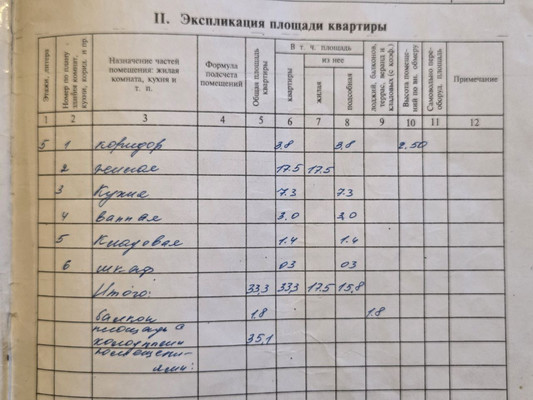 II. Экспликация площади квартиры
Этажи, литера
Номер по плану
кухни, корид. и пр.
Назначение частей помещения: жилая комната, кухня и т. п.
Формула подсчета помещений
Общая площадь квартиры
В т. ч. площадь
квартиры
из нее
жилая
подсобная
лоджий, балконов, террас, веранд и кладовых (с коэф.)
Высота помещений по вн. обмеру
Самовольно переоборуд. площадь
Примечание
1 2 3 4 5 6 7 8 9 10 11 12
5 1 коридор 3,8 3,8 2.50
2 жилая 17.5 17.5
3 Кухня 7.3 7.3
4 ванная 3.0 3,0
5 Кладовая 1.4 1.4
6 шкаф 03 03
Итого: 33,3 33,3 17.5 15,8
балкон 1.8 1.8
площадь с
холодными 35,1
помещени-
ями: